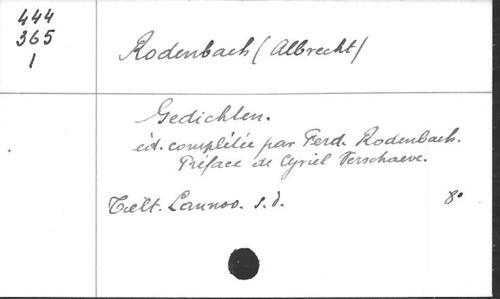 444
365
1
Rodenbach (Albrecht)
Gedichten.
éd. complétée par Ferd. Rodenbach.
Préface de Cyriel Verschaeve.
Tielt. Lannoo. s.d. 8°